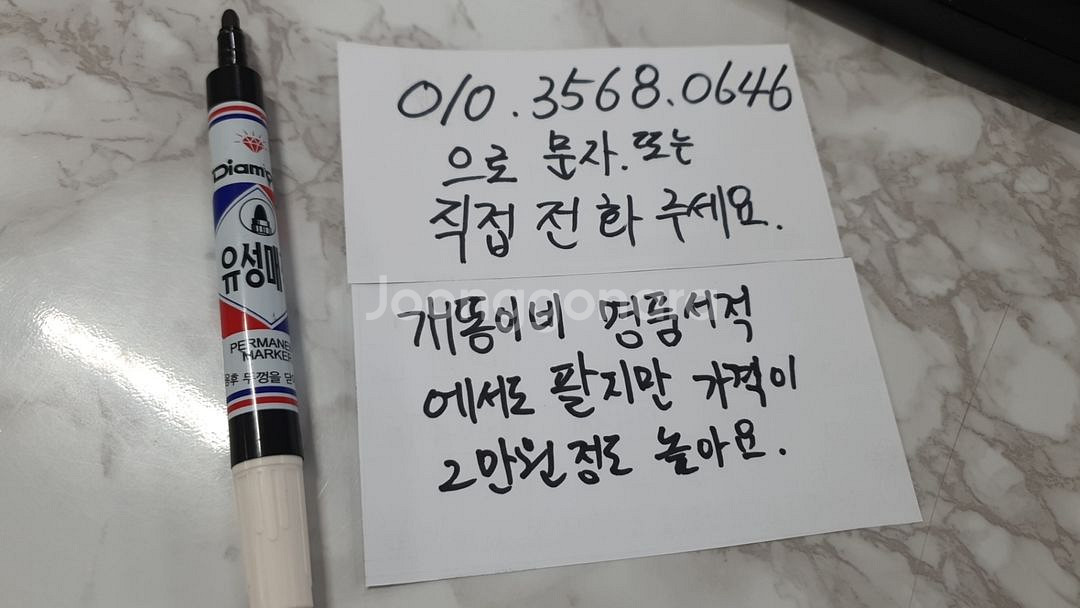 010.3568.0646
으로 문자. 또는
직접 전화 주세요.
개똥이네 명품서적
에서도 팔지만 가격이
2만원 정도 높아요.
Joonggonara
Diam
유성매
PERMANE
MARKER
용후 뚜껑을 닫